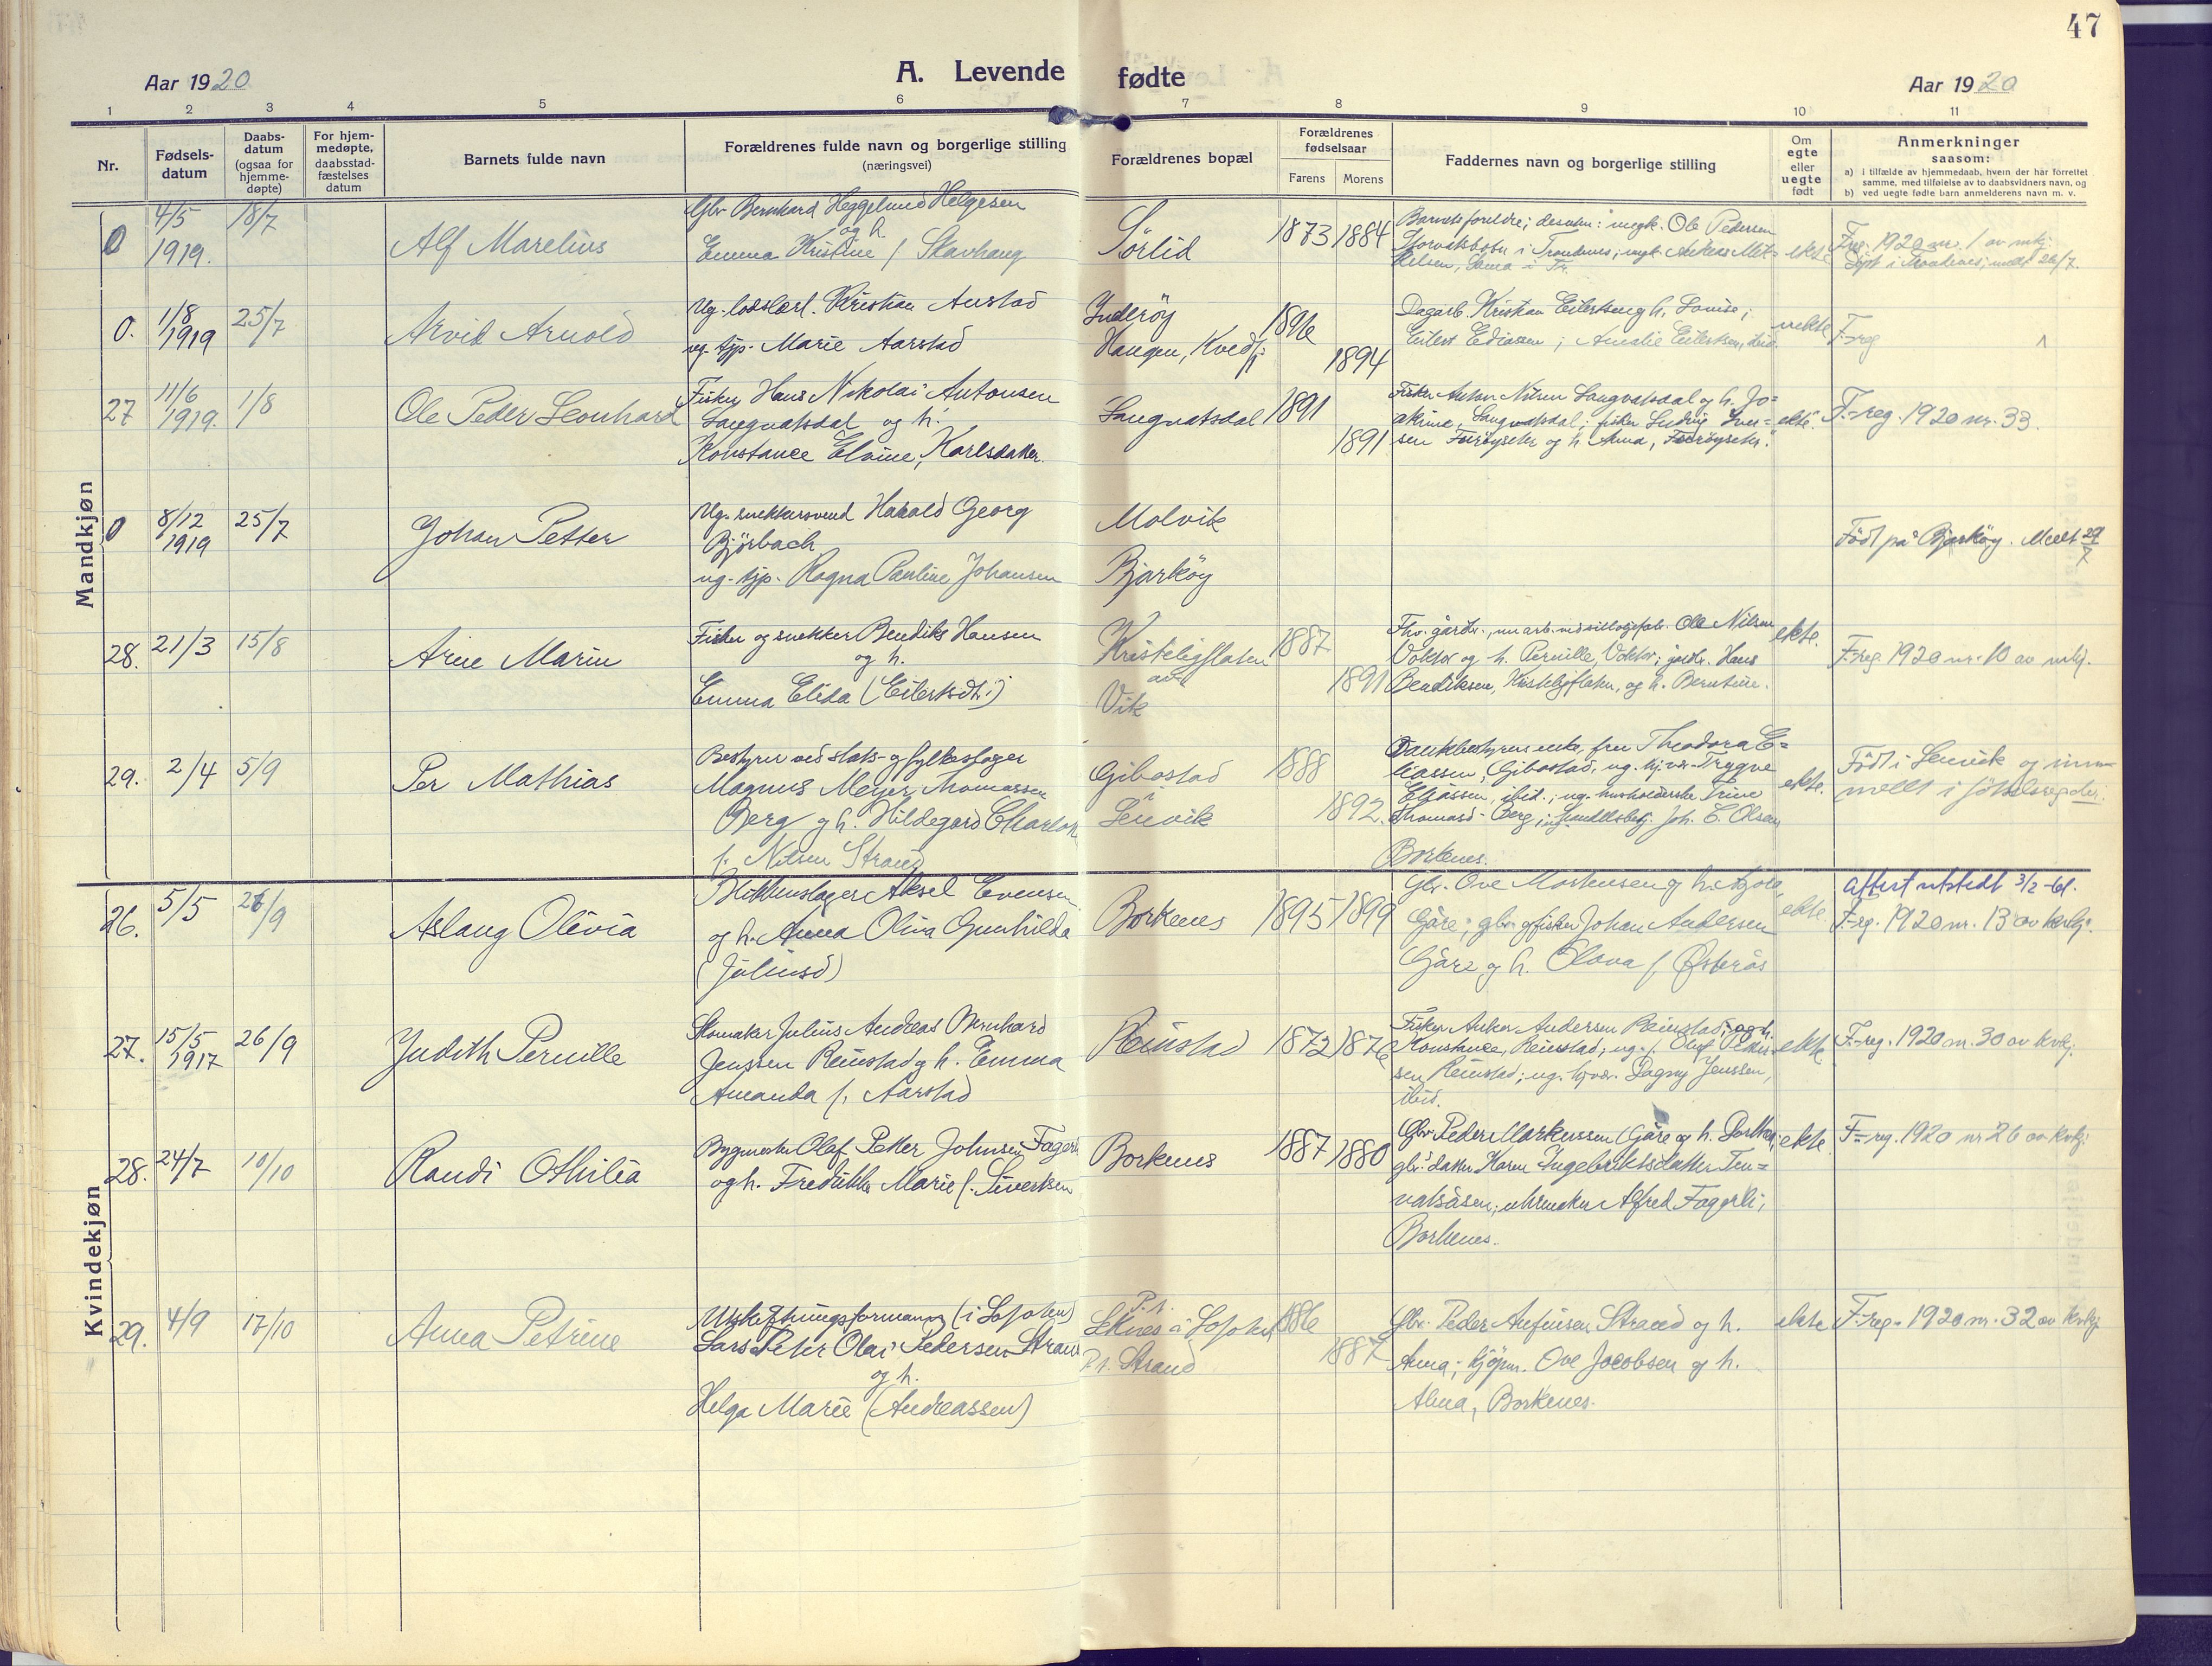 47
Aar 1920
A. Levende fødte
Aar 1920
1 2 3 4 5 6 7 8 9 10 11
Nr.
Fødsels-
datum
Daabs-
datum
(ogsaa for
hjemme-
døpte)
For hjem-
medøpte,
daabsstad-
fæstelses
datum
Barnets fulde navn
Forældrenes fulde navn og borgerlige stilling
(næringsvei)
Forældrenes bopæl
Forældrenes
fødselsaar
Farens Morens
Faddernes navn og borgerlige stilling
Om
egte
eller
uegte
født
Anmerkninger
saasom:
a) i tilfælde av hjemmedaab, hvem der har forrettet
samme, med tilføielse av to daabsvidners navn, og
b) ved uegte fødte barn anmelderens navn m. v.
Mandkjøn
0 4/5
1919. 18/7
Alf Marelius
Gbr Bernhard Heggelund Helgesen
og h
Emma Kristine f. Skavhaug
Sørlid
1873 1884
Barnets foreldre; desuten: ungk. Ole Pedersen
Storvatsbotn i Trondenes; ungk. Andreas Mik-
kelsen, Sama i Tr.
ekte
F-reg. 1920 nr. 1 av mkj.
Døpt i Trondenes; meldt 26/7.
0. 1/8
1919 25/7
Arvid Arnold
Ug. losslærl. Kristian Austad
ug. tjp. Marie Aarstad
Inderøy
Haugen, Kvedfj.
1896
1894
Dagarb. Kristian Eilertsen og h. Lovise;
Eilert Ediassen; Amalie Eilertsen, ibid.
uekte
F-reg
27 11/6
1919. 1/8
Ole Peder Leonhard
Fisker Hans Nikolai Antonsen
Langvatsdal og h.
Konstance Elvine, Karlsdatter.
Langvatsdal
1891
1891
Fisker Anton Nilsen Langvatsdal og h. Jo-
akime, Langvatsdal; fisker Ludvig Iver-
sen Forøyseter og h. Anna, Forøyseter.
ekte.
F-reg. 1920 nr. 33.
0 8/12
1919 25/7
Johan Petter
Ug. snekkersvend Harald Georg
Bjørbach
ug. tjp. Ragna Pauline Johansen
Molvik
Bjarkøy
Født på Bjarkøy. Meldt 29/7
28. 21/3 15/8
Arne Marin
Fisker og snekker Bendiks Hansen
og h.
Emma Elida (Eilertsdt.)
Kristeligflaten
av
Vik
1887
1891
Fhv. gårdbr., nu arb. ved sildoljefabr. Ole Nilsen
Voktor og h. Pernille, Voktor; gårdbr. Hans
Bendiksen, Kristeligflaten, og h. Berntine.
ekte.
F-reg 1920 nr. 10 av mkj.
29. 2/4 5/9
Per Mathias
Bestyrer ved stats- og fylkeslager
Magnus Meyer Thomassen
Berg og h. Hildegard Charlot
f. Nilsen Strand
Gibostad
i
Lenvik
1888
1892.
Bankbestyrers enke, fru Theodora E-
liassen, Gibostad, ug. hj.vær. Trygve
Eliassen, ibid.; ug. husholderske Trine
Thomasd. Berg; handelsbetj. Joh. C. Olsen
Borkenes.
ekte.
Født i Lenvik og inn-
meldt i fødselsreg der.
Kvindekjøn
26. 5/5 26/9
Aslaug Olivia
Blikkenslager Aksel Evensen
og h. Anna Oliva Gunhilda
(Juliusd)
Borkenes
1895 1899
Gbr. Ove Mortensen og h.
Gåre; gbr. og fisker Johan Andersen
Gåre og h. Olava f. Østerås
ekte.
Attest utstedt 3/2-61.
F-reg. 1920 nr. 13 av kvkj.
27. 15/5
1917 26/9
Judith Pernille
Skomaker Julius Andreas Bernhard
Jenssen Reinstad og h. Emma
Amanda f. Aarstad
Reinstad
1872 1876
Fisker Anker Andersen Reinstad, og h.
Konstance, Reinstad; ug. f. Olaf Peder-
sen Reinstad; ug. hjvær. Dagny Jenssen,
ibid.
ekte
F-reg. 1920 nr. 30 av kvkj.
28. 24/7 10/10
Randi Othilia
Bygmester Olaf Petter Johnsen Fagerli
og h. Fredrikke Marie f. Sivertsen
Borkenes
1887 1880
Gbr Peder Markussen Gåre og h. Dorthea,
gbr.datter Karen Ingebriktsdatter Ten-
vatsåsen; uhrmaker Alfred Fagerli,
Borkenes.
ekte
F-reg. 1920 nr 26 av kvkj
29. 4/9 17/10
Anna Petrine
Utskiftningsformann (i Lofoten)
Lars Peter Olai Pedersen Strand
og h.
Helga Marie (Andreassen)
P. t.
Leknes i Lofoten
P. t. Strand
1886
1887
Gbr. Peder Anfinsen Strand og h.
Anna; kjøpm. Ove Jacobsen og h.
Alma, Borkenes.
ekte
F-reg. 1920 nr. 32 av kvkj